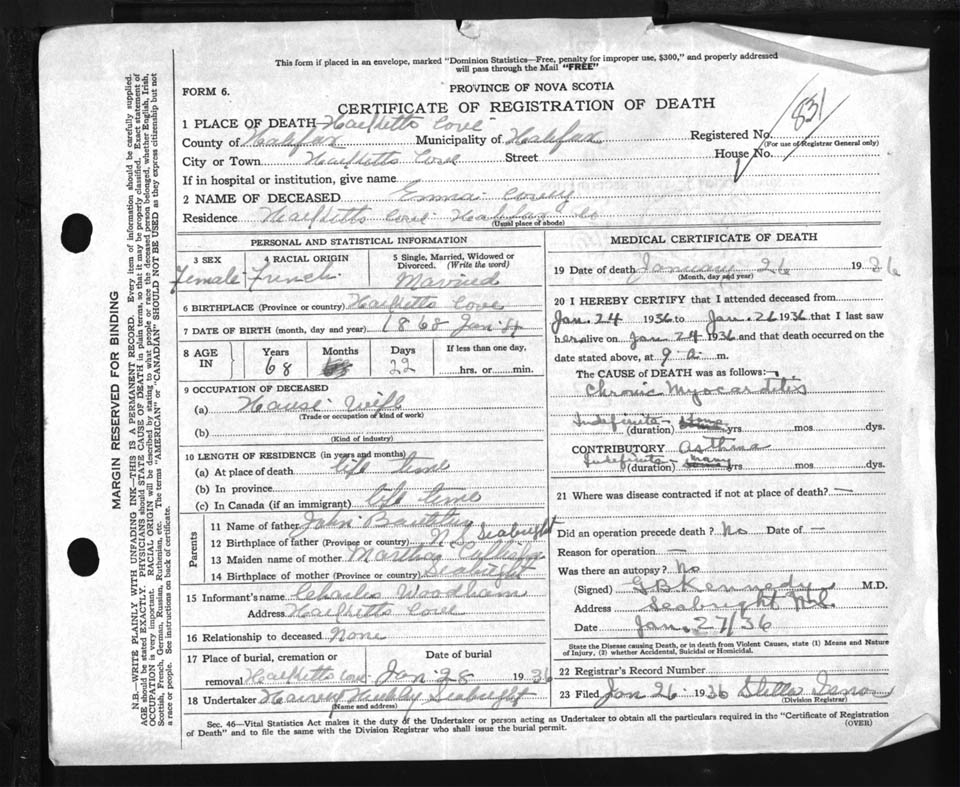 This form if placed in an envelope, marked "Dominion Statistics—Free, penalty for improper use, $300," and properly addressed
will pass through the Mail "FREE"
FORM 6.
PROVINCE OF NOVA SCOTIA
CERTIFICATE OF REGISTRATION OF DEATH
831
1 PLACE OF DEATH Hacketts Cove
County of Halifax Municipality of Halifax Registered No.
(For use of Registrar General only)
City or Town Hacketts Cove Street House No.
If in hospital or institution, give name
2 NAME OF DECEASED Emma
Residence Hacketts Cove Halifax Co
(Usual place of abode)
PERSONAL AND STATISTICAL INFORMATION
3 SEX 4 RACIAL ORIGIN 5 Single, Married, Widowed or
Divorced. (Write the word)
Female French Married
6 BIRTHPLACE (Province or country) Hacketts Cove
7 DATE OF BIRTH (month, day and year) 1868 Jan 4
8 AGE IN Years Months Days If less than one day,
68 22 hrs. or min.
9 OCCUPATION OF DECEASED
(a) House Wife
(Trade or occupation or kind of work)
(b)
(Kind of industry)
10 LENGTH OF RESIDENCE (in years and months)
(a) At place of death life time
(b) In province
(c) In Canada (if an immigrant) life time
Parents
11 Name of father John
12 Birthplace of father (Province or country) N.S. Seabright
13 Maiden name of mother Martha
14 Birthplace of mother (Province or country) Seabright
15 Informant's name Charles Woodham
Address Hacketts Cove
16 Relationship to deceased None
17 Place of burial, cremation or Date of burial
removal Hacketts Cove Jan 28 1936
18 Undertaker Harvey Hubley Seabright
(Name and address)
MEDICAL CERTIFICATE OF DEATH
19 Date of death January 26 1936
(Month, day and year)
20 I HEREBY CERTIFY that I attended deceased from
Jan. 24 1936 to Jan. 26 1936 that I last saw
her alive on Jan 24 1936 and that death occurred on the
date stated above, at 9 a. m.
The CAUSE OF DEATH was as follows:
Chronic Myocarditis
Indefinite (duration) yrs mos dys.
CONTRIBUTORY Asthma
Indefinite (duration) many yrs mos dys.
21 Where was disease contracted if not at place of death? —
Did an operation precede death? No Date of —
Reason for operation —
Was there an autopsy? No
(Signed) G B Kennedy M.D.
Address Seabright N.S.
Date Jan. 27/36
State the Disease causing Death, or in death from Violent Causes, state (1) Means and Nature
of Injury, (2) whether Accidental, Suicidal or Homicidal.
22 Registrar's Record Number
23 Filed Jan 26 1936 Stella
(Division Registrar)
Sec. 46—Vital Statistics Act makes it the duty of the Undertaker or person acting as Undertaker to obtain all the particulars required in the "Certificate of Registration
of Death" and to file the same with the Division Registrar who shall issue the burial permit. (OVER)
MARGIN RESERVED FOR BINDING
N.B.—WRITE PLAINLY WITH UNFADING INK—THIS IS A PERMANENT RECORD. Every item of information should be carefully supplied.
AGE should be stated EXACTLY. PHYSICIANS should STATE CAUSE OF DEATH in plain terms, so that it may be properly classified. Exact statement of
OCCUPATION is very important. RACIAL ORIGIN will be described by stating to what people or race the deceased person belonged, whether English, Irish,
Scottish, French, German, Russian, Ruthenian, etc. The terms "AMERICAN" or "CANADIAN" SHOULD NOT BE USED as they express citizenship but not
a race or people. See instructions on back of certificate.